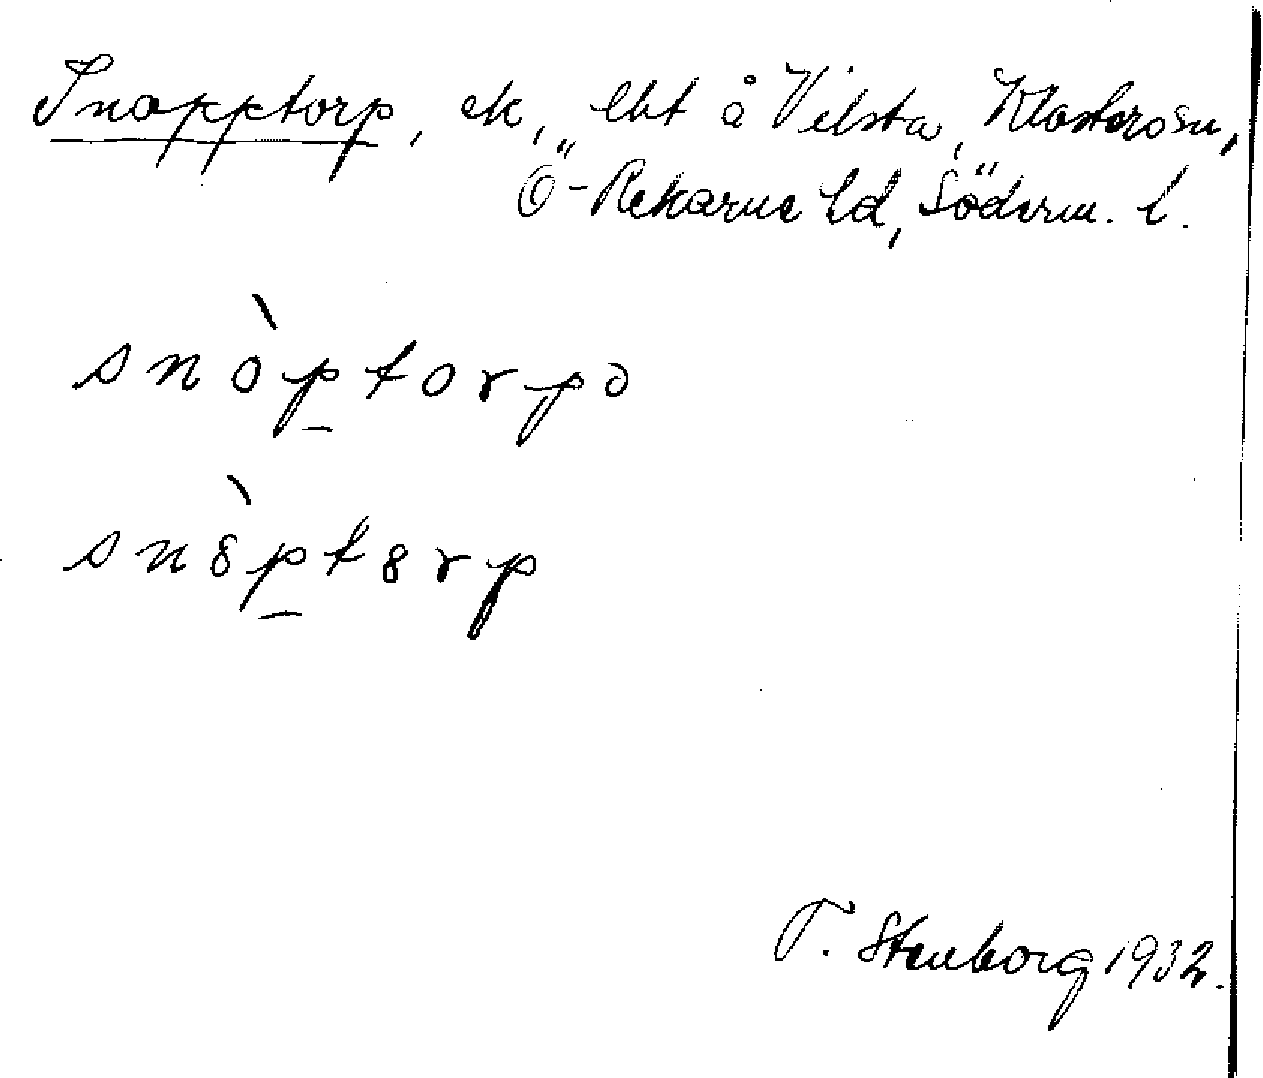 Snopptorp, ek, lht å Vilsta, Klosters sn,
Ö-Rekarne hd, Söderm. l.
snòp̠torpo
snȣ̀p̠tȣrp
T. Stenborg 1932.